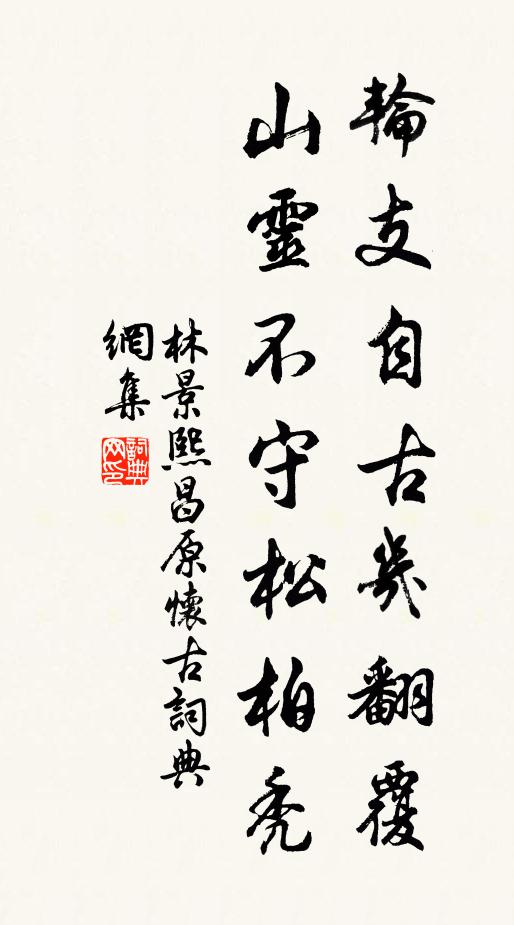 輪支自古幾翻覆
山靈不守松柏禿
林景熙昌原懷古詞典
網集
詞典
网印